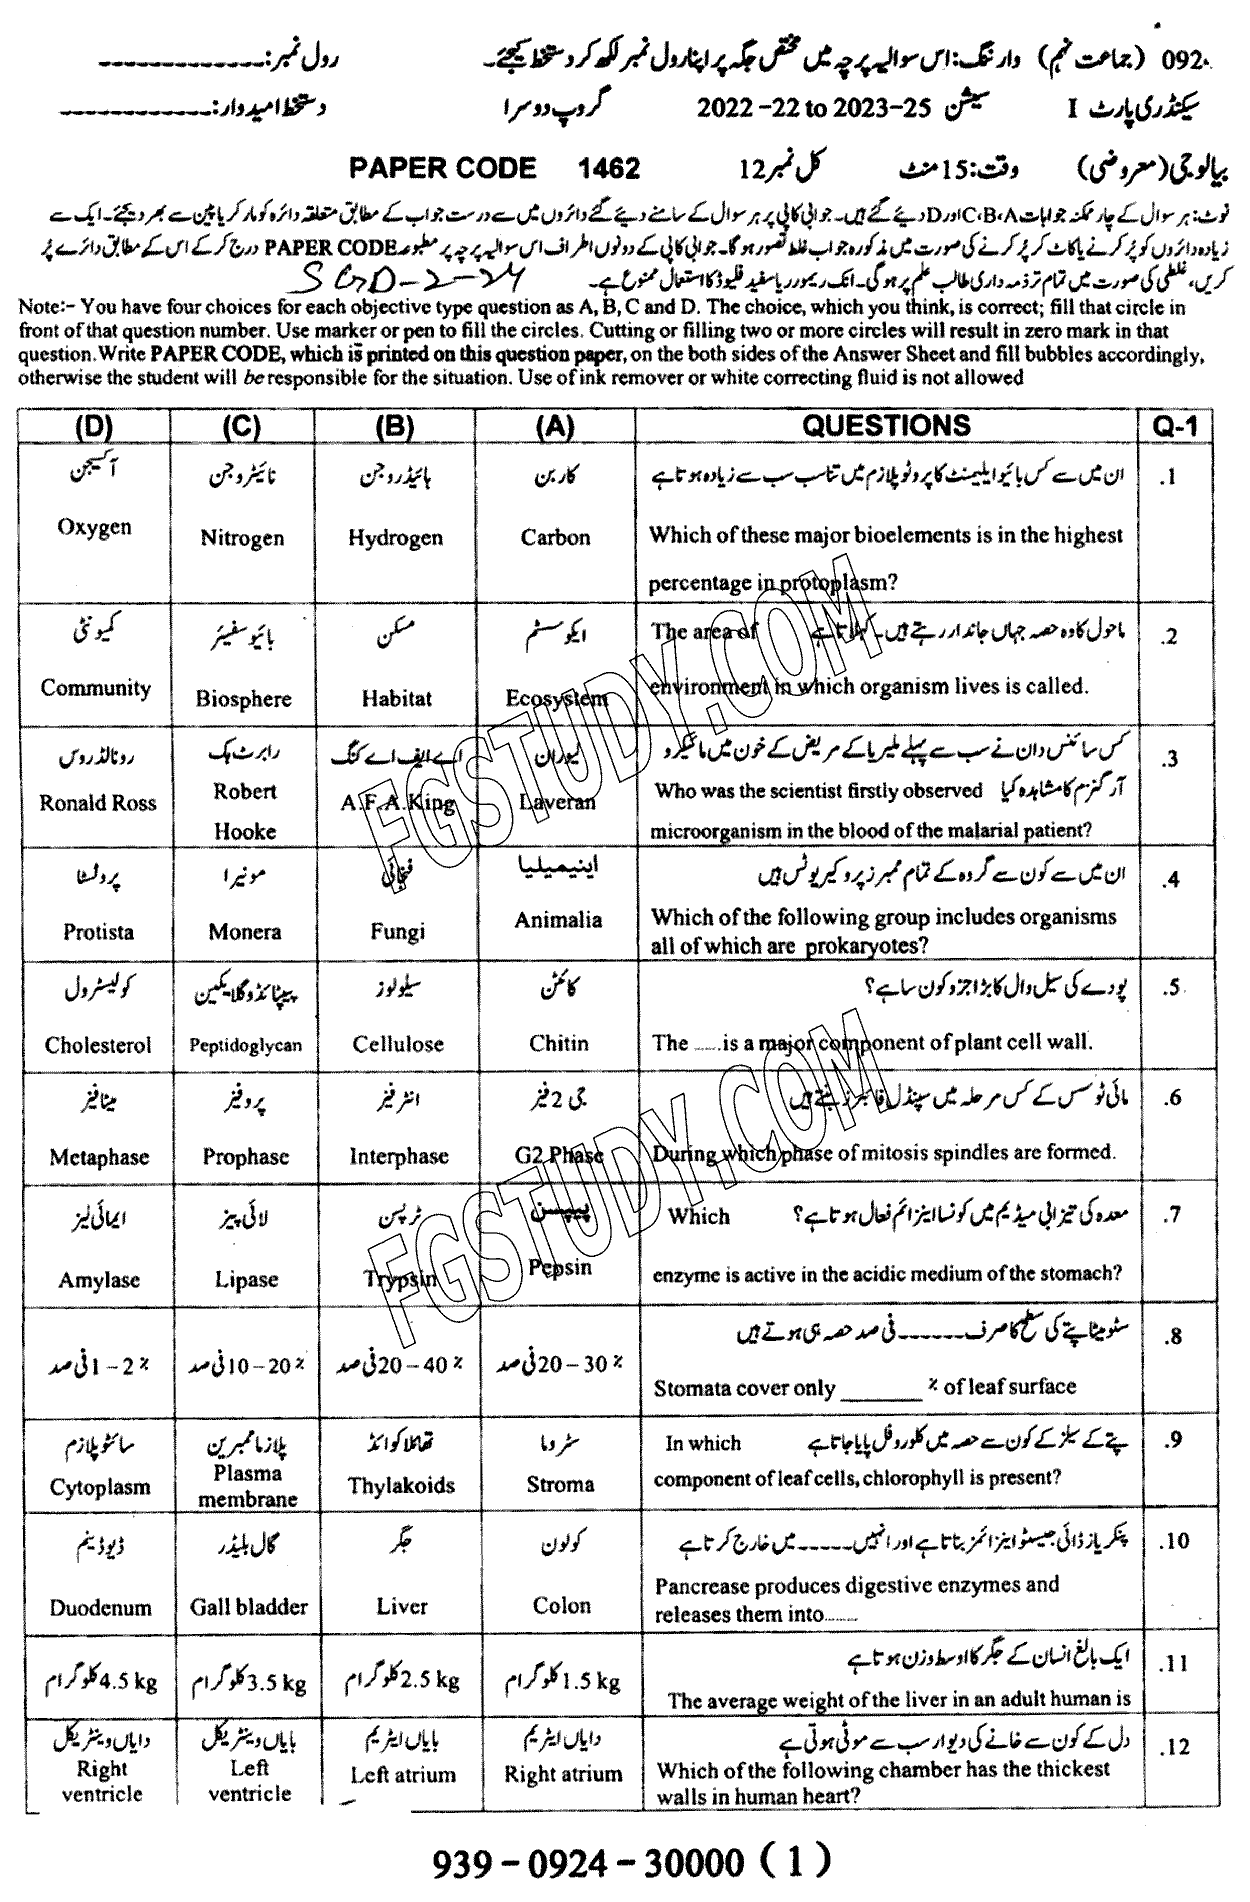 092 (جماعت نہم) وارننگ: اس سوالیہ پرچہ میں مختص جگہ پر اپنا رول نمبر لکھ کر دستخط کیجئے۔ رول نمبر: -------------
سیکنڈری پارٹ I سیشن 2022-22 to 2023-25 گروپ دوسرا دستخط امیدوار: -------------
بیالوجی (معروضی) وقت: 15 منٹ کل نمبر 12 PAPER CODE 1462
نوٹ: ہر سوال کے چار ممکنہ جوابات A،B،C اور D دیئے گئے ہیں۔ جوابی کاپی پر ہر سوال کے سامنے دیئے گئے دائروں میں سے درست جواب کے مطابق متعلقہ دائرہ کو مارکر یا پین سے بھر دیجئے۔ ایک سے
زیادہ دائروں کو پُر کرنے یا کاٹ کر پُر کرنے کی صورت میں مذکورہ جواب غلط تصور ہوگا۔ جوابی کاپی کے دونوں اطراف اس سوالیہ پرچہ پر مطبوعہ PAPER CODE درج کر کے اس کے مطابق دائرے پُر
کریں، غلطی کی صورت میں تمام تر ذمہ داری طالب علم پر ہوگی۔ انک ریموور یا سفید فلیوڈ کا استعمال ممنوع ہے۔ SGD-2-24
Note:- You have four choices for each objective type question as A, B, C and D. The choice, which you think, is correct; fill that circle in
front of that question number. Use marker or pen to fill the circles. Cutting or filling two or more circles will result in zero mark in that
question. Write PAPER CODE, which is printed on this question paper, on the both sides of the Answer Sheet and fill bubbles accordingly,
otherwise the student will be responsible for the situation. Use of ink remover or white correcting fluid is not allowed
(D) (C) (B) (A) QUESTIONS Q-1
آکسیجن نائیٹروجن ہائیڈروجن کاربن ان میں سے کس بائیو ایلیمنٹ کا پروٹوپلازم میں تناسب سب سے زیادہ ہوتا ہے .1
Oxygen Nitrogen Hydrogen Carbon Which of these major bioelements is in the highest
percentage in protoplasm?
کمیونٹی بائیوسفیئر مسکن ایکوسسٹم ماحول کا وہ حصہ جہاں جاندار رہتے ہیں۔ کہلاتا ہے The area of .2
Community Biosphere Habitat Ecosystem environment in which organism lives is called.
رونالڈ روس رابرٹ ہک اے ایف اے کنگ لیوران کس سائنس دان نے سب سے پہلے ملیریا کے مریض کے خون میں مائیکرو .3
Ronald Ross Robert A.F.A.King Laveran آرگنزم کا مشاہدہ کیا Who was the scientist firstly observed
Hooke microorganism in the blood of the malarial patient?
پروٹسٹا مونیرا فنجائی اینیمیلیا ان میں سے کون سے گروہ کے تمام ممبرز پروکیریوٹس ہیں .4
Protista Monera Fungi Animalia Which of the following group includes organisms
all of which are prokaryotes?
کولیسٹرول پیپٹائڈوگلائیکین سیلولوز کائٹن پودے کی سیل وال کا بڑا جزو کون سا ہے؟ .5
Cholesterol Peptidoglycan Cellulose Chitin The ......is a major component of plant cell wall.
میٹافیز پروفیز انٹرفیز جی 2 فیز مائی ٹوسس کے کس مرحلہ میں سپنڈل فائبرز بنتے ہیں .6
Metaphase Prophase Interphase G2 Phase During which phase of mitosis spindles are formed.
ایمائی لیز لائی پیز ٹرپسن پیپسن معدہ کی تیزابی میڈیم میں کونسا اینزائم فعال ہوتا ہے؟ Which .7
Amylase Lipase Trypsin Pepsin enzyme is active in the acidic medium of the stomach?
سٹومیٹا پتے کی سطح کا صرف ------- فی صد حصہ ہی ہوتے ہیں .8
1-2% فی صد 10-20% فی صد 20-40% فی صد 20-30% فی صد Stomata cover only _______ % of leaf surface
سائٹوپلازم پلازما ممبرین تھائلاکوائڈ سٹروما پتے کے سیلز کے کون سے حصہ میں کلوروفل پایا جاتا ہے In which .9
Cytoplasm Plasma membrane Thylakoids Stroma component of leaf cells, chlorophyll is present?
ڈیوڈینم گال بلیڈر جگر کولون پنکریاز ڈائی جیسٹو اینزائمز بناتا ہے اور انہیں ----- میں خارج کرتا ہے .10
Duodenum Gall bladder Liver Colon Pancrease produces digestive enzymes and
releases them into........
ایک بالغ انسان کے جگر کا اوسط وزن ہوتا ہے .11
4.5 kg کلوگرام 3.5 kg کلوگرام 2.5 kg کلوگرام 1.5 kg کلوگرام The average weight of the liver in an adult human is
دایاں وینٹریکل بایاں وینٹریکل بایاں ایٹریم دایاں ایٹریم دل کے کون سے خانے کی دیوار سب سے موٹی ہوتی ہے .12
Right ventricle Left ventricle Left atrium Right atrium Which of the following chamber has the thickest
walls in human heart?
939-0924-30000 (1)
FGSTUDY.COM
FGSTUDY.COM